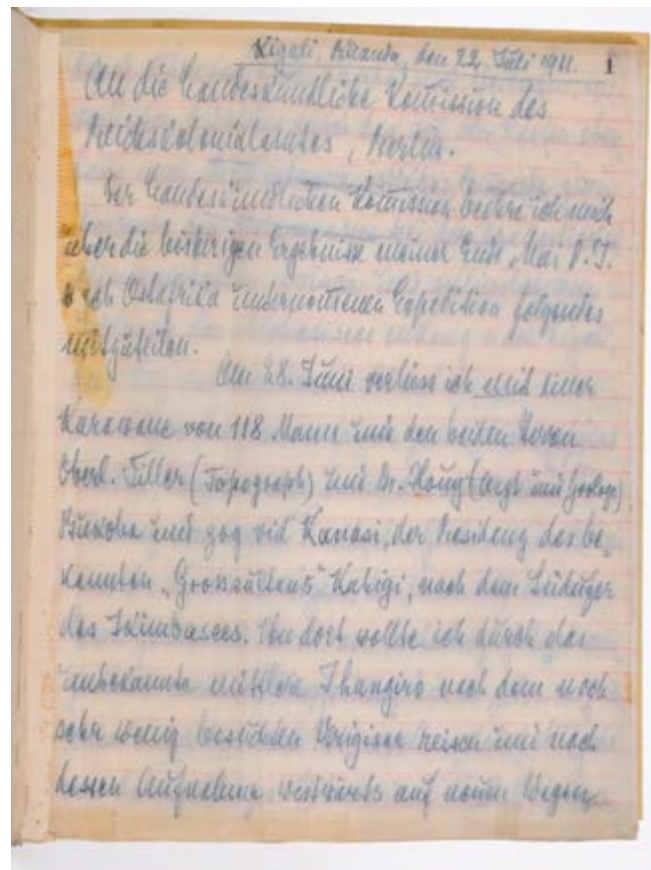 Kigali, Ruanda, den 22. Juli 1911. 1
An die Landeskundliche Komission des
Reichskolonialamtes, Berlin.
Der Landeskundlichen Komission beehre ich mich
über die bisherigen Ergebnisse meiner Ende Mai d. J.
nach Ostafrika unternommenen Expedition folgendes
mitzuteilen.
Am 28. Juni verliess ich mit einer
Karawane von 118 Mann und den beiden Herren
Oberl. Tiller (Topograph) und Dr. Houy (Arzt und Zoologe)
Bukoba und zog via Kanasi, der Residenz des be-
kannten „Grosssultans" Kahigi, nach dem Südufer
des Ikimbasees. Von dort wollte ich durch das
unbekannte mittlere Ihangiro nach dem noch
sehr wenig besuchten Urigisee reisen und nach
dessen Aufnahme westwärts auf neuen Wegen